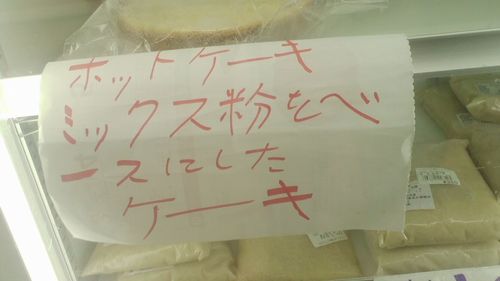 ホットケーキ
ミックス粉をべ
ースにした
ケーキ